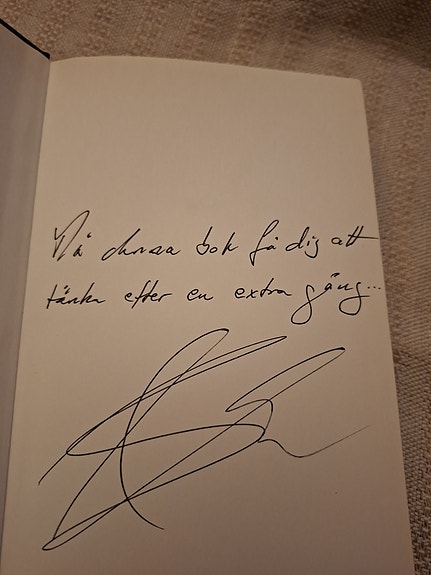 Må denna bok få dig att
tänka efter en extra gång...